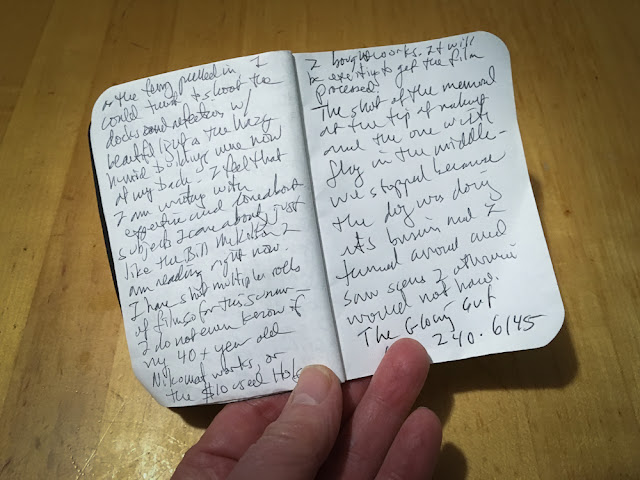 the ferry pulled in I
could turn to shoot the
docks and reflection w/
beautiful light & the hazy
humid buildings were now
at my back. I feel that
I am writing with
expertise and fondness about
subjects I care about, just
like the Bill McKibben I
am reading right now.
I have shot multiple rolls
of film so far this summer –
I do not even know if
my 40+ year old
Nikomat works, or
the $10 used Hol
I bought works. It will
be exciting to get the film
processed.
The shot of the memorial
at the tip of
and the one with
flag in the middle –
we stopped because
the dog was doing
its business and I
turned around and
saw signs I otherwise
would not have.
The Glowing
240.6145